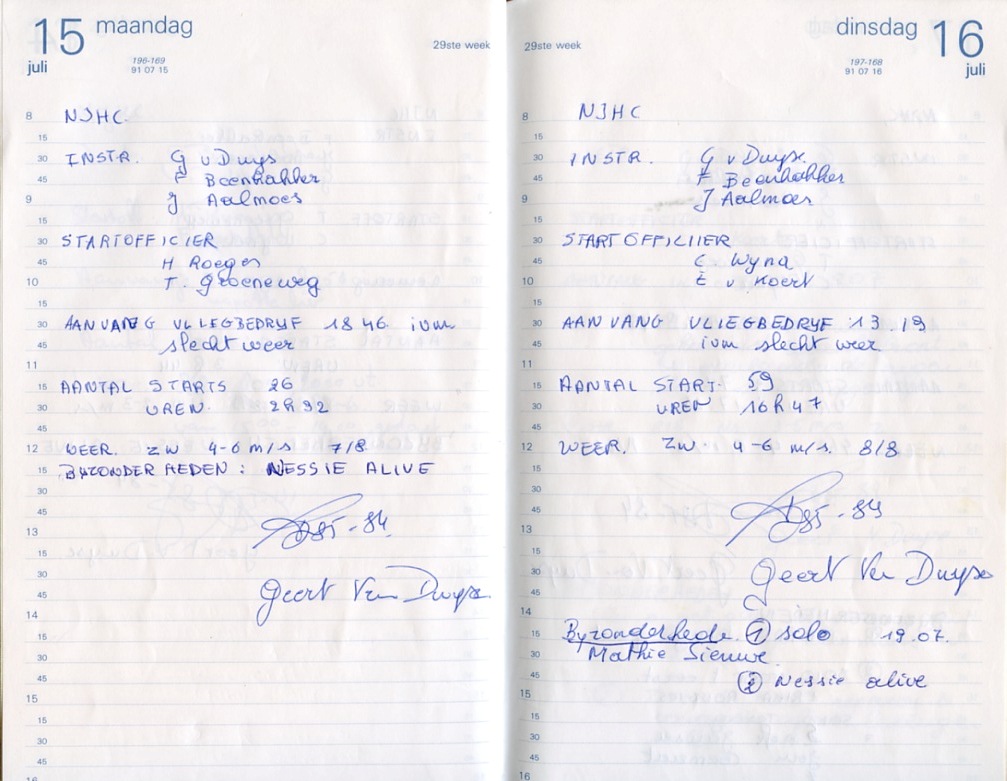 15 maandag
juli
196-169
91 07 15
29ste week
8 NJHC.
15
30 INSTR. G v Duys
45 F Beenhakker
9 J Aalmoes
15
30 STARTOFFICIER
45 H Roeger
10 T. Groeneweg
15
30 AANVANG VLIEGBEDRYF 18 46. ivm
45 slecht weer
11
15 AANTAL STARTS 26
30 UREN. 2h 32
45
12 WEER. ZW 4-6 m/s 7/8
15 BYZONDERHEDEN: NESSIE ALIVE
30
45
13
15
30
45 Geert Van Duyse
14
15
30
45
15
15
30
45
dinsdag 16
juli
29ste week
197-168
91 07 16
8 NJHC
15
30 INSTR. G v Duyse
45 F Beenhakker
9 J Aalmoes
15
30 STARTOFFICIIER
45 C. Wyna
10 E v Koert
15
30 AANVANG VLIEGBEDRYF 13.19
45 ivm slecht weer
11
15 AANTAL START. 59
30 UREN 16h 47
45
12 WEER. ZW. 4-6 m/s. 8/8
15
30
45
13
15
30 Geert Van Duyse
45
14
15 Byzonderhede. ① solo 19.07.
30 Mathie Sieuwe
45 ② Nessie alive
15
15
30
45
16